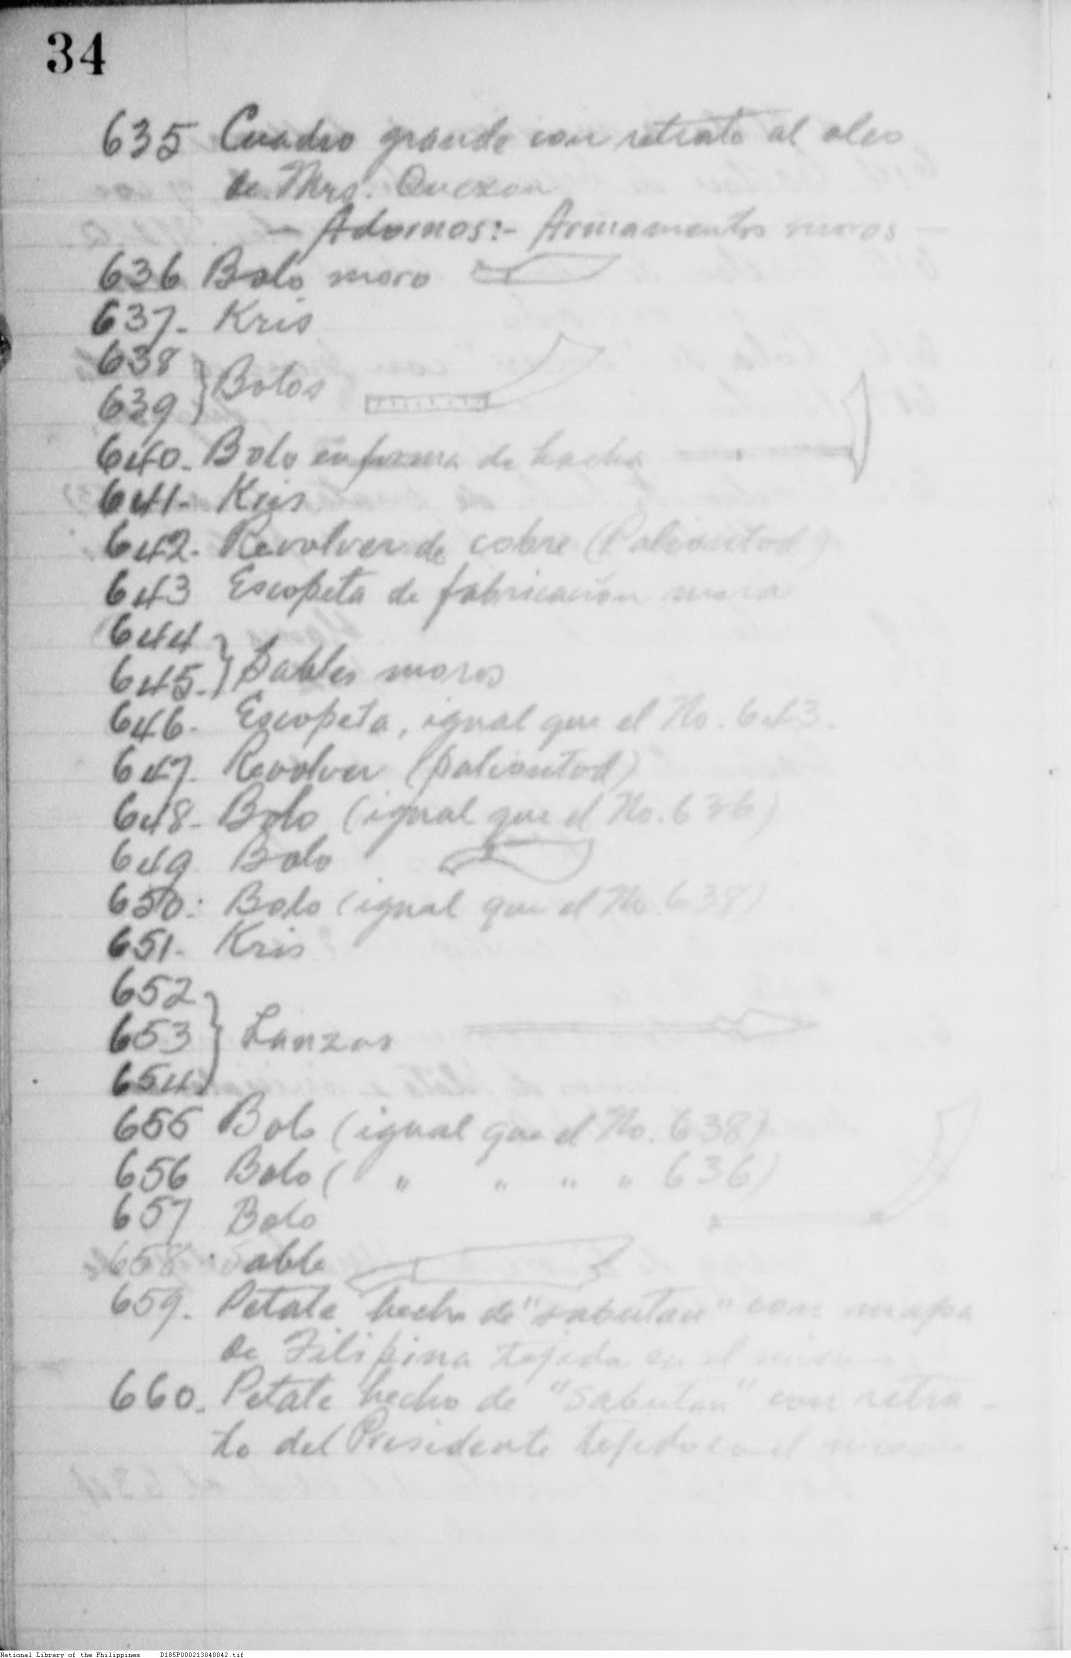 34
635 Cuadro grande con retrato al oleo
de Mrs. Quezon
- Adornos:- Armamentos moros -
636 Bolo moro
637- Kris
638
639 } Bolos
640- Bolo en forma de hacha
641- Kris
642- Revolver de cobre (Paliontod)
643 Escopeta de fabricación mora
644
645- } Sables moros
646- Escopeta, igual que el No. 643.
647- Revolver (paliontod)
648- Bolo (igual que el No. 636)
649 Bolo
650: Bolo (igual que el No. 638)
651- Kris
652
653 } Lanzas
654
655 Bolo (igual que el No. 638)
656 Bolo ( " " " " 636)
657 Bolo
658 Sable
659. Petate hecho de "sabutan" con mapa
de Filipina tejida en el mismo
660. Petate hecho de "Sabutan" con retra-
to del Presidente tejido en el mismo
National Library of the Philippines D185P000213840042.tif